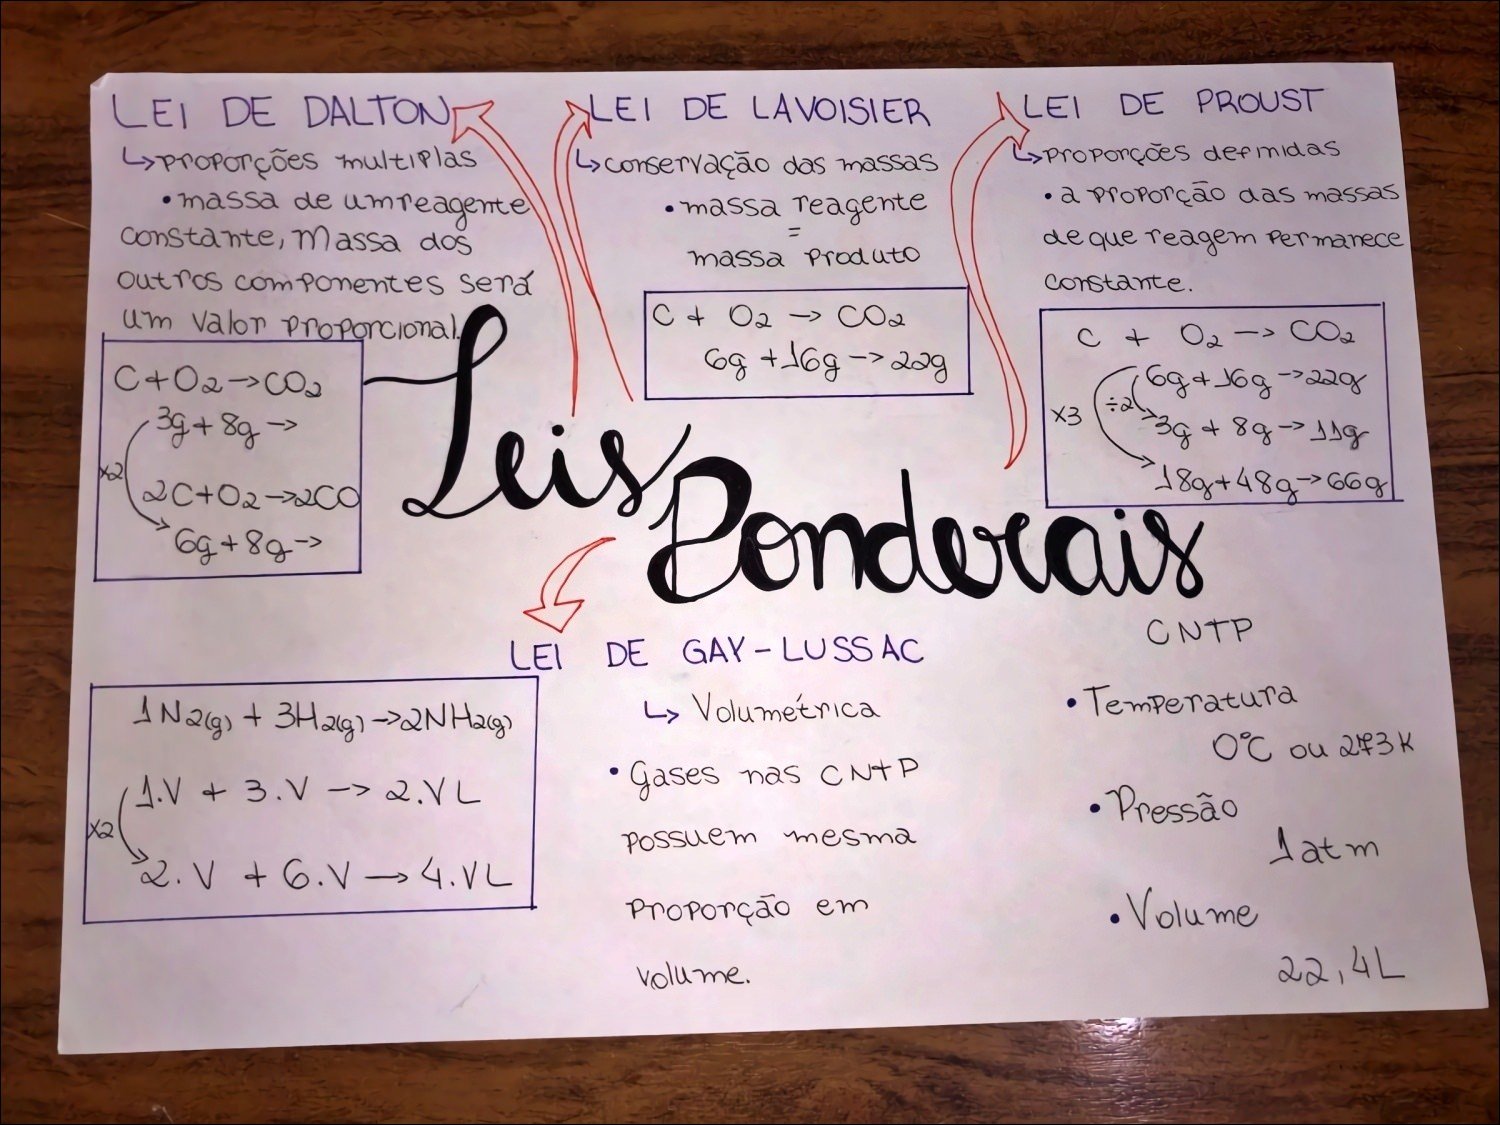 LEI DE DALTON
↳ proporções multiplas
• massa de um reagente
constante, massa dos
outros componentes será
um valor proporcional.
C + O₂ → CO₂
3g + 8g →
x2
2C + O₂ → 2CO
6g + 8g →
LEI DE LAVOISIER
↳ conservação das massas
• massa reagente
=
massa produto
C + O₂ → CO₂
6g + 16g → 22g
LEI DE PROUST
↳ proporções definidas
• a proporção das massas
de que reagem permanece
constante.
C + O₂ → CO₂
6g + 16g → 22g
x3 ÷2
3g + 8g → 11g
18g + 48g → 66g
Leis
Ponderais
LEI DE GAY-LUSSAC
↳ Volumétrica
• Gases nas CNTP
possuem mesma
proporção em
volume.
1N₂(g) + 3H₂(g) → 2NH₂(g)
1.V + 3.V → 2.VL
x2
2.V + 6.V → 4.VL
CNTP
• Temperatura
0°C ou 273K
• Pressão
1atm
• Volume
22,4L